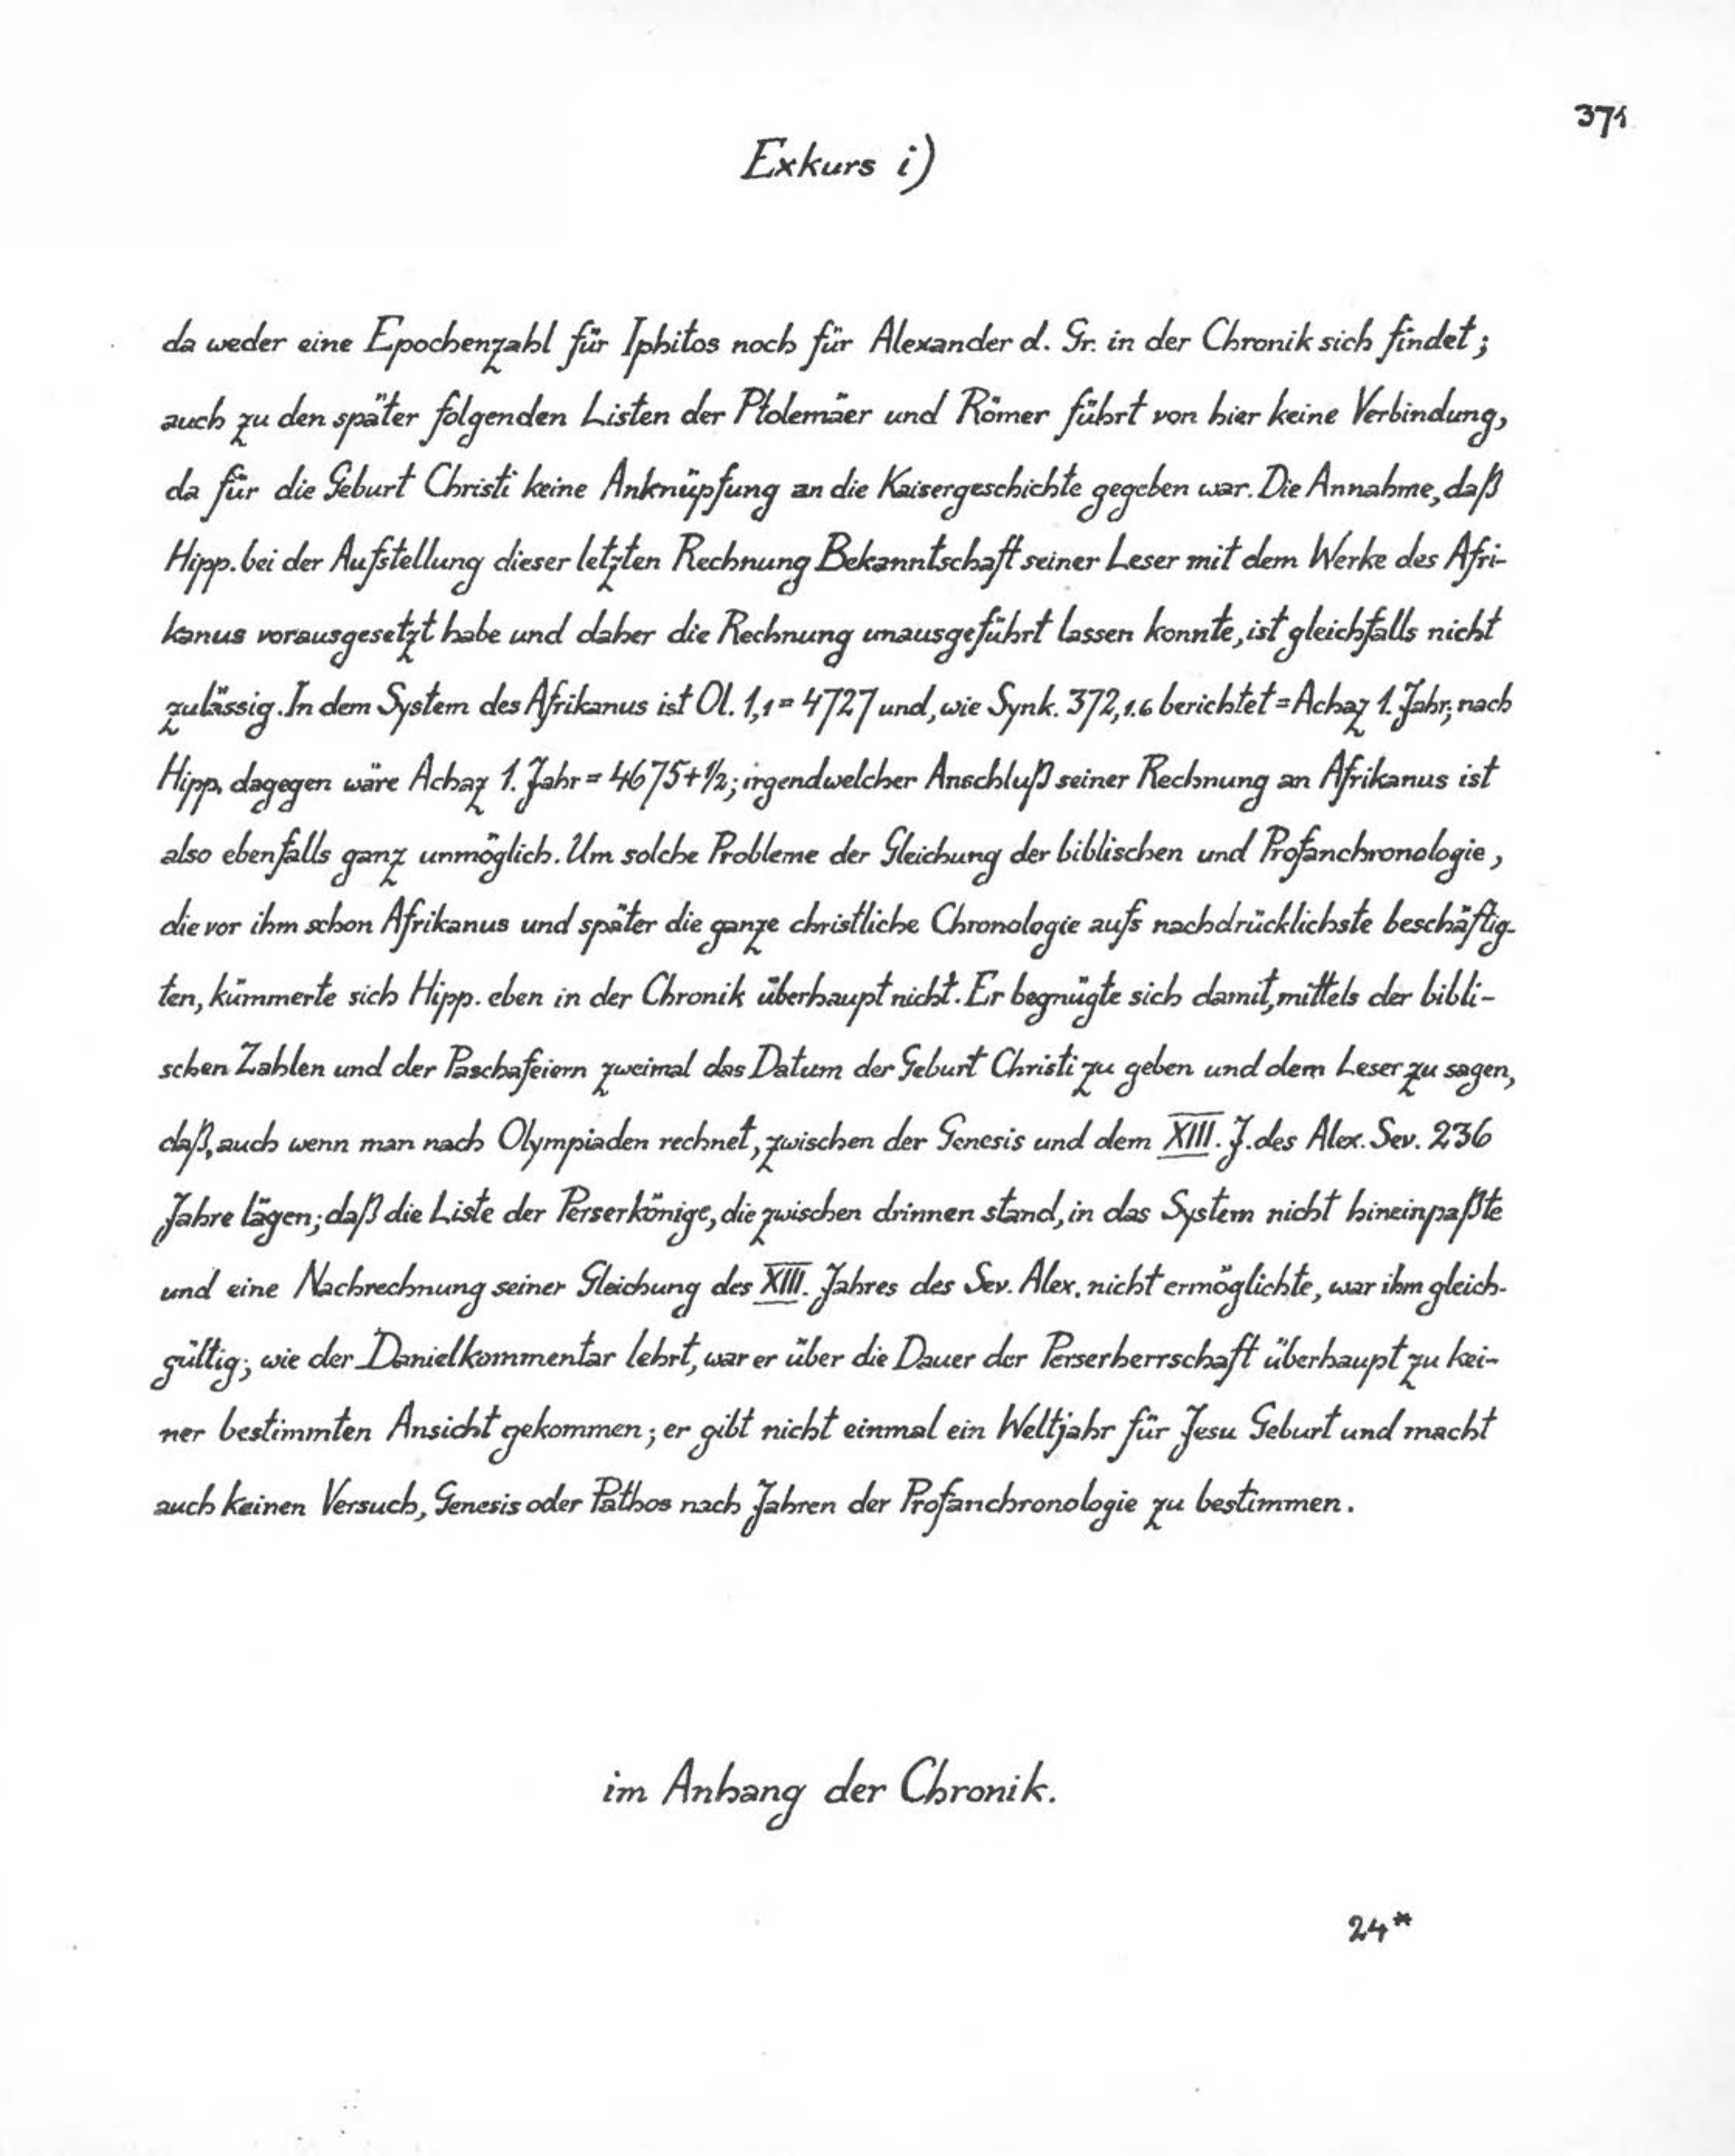 371
Exkurs i)
da weder eine Epochenzahl für Iphitos noch für Alexander d. Gr. in der Chronik sich findet;
auch zu den später folgenden Listen der Ptolemäer und Römer führt von hier keine Verbindung,
da für die Geburt Christi keine Anknüpfung an die Kaisergeschichte gegeben war. Die Annahme, daß
Hipp. bei der Aufstellung dieser letzten Rechnung Bekanntschaft seiner Leser mit dem Werke des Afri-
kanus vorausgesetzt habe und daher die Rechnung unausgeführt lassen konnte, ist gleichfalls nicht
zulässig. In dem System des Afrikanus ist Ol. 1,1 = 4727 und, wie Synk. 372,1.6 berichtet = Achaz 1. Jahr; nach
Hipp. dagegen wäre Achaz 1. Jahr = 4675+½; irgendwelcher Anschluß seiner Rechnung an Afrikanus ist
also ebenfalls ganz unmöglich. Um solche Probleme der Gleichung der biblischen und Profanchronologie,
die vor ihm schon Afrikanus und später die ganze christliche Chronologie aufs nachdrücklichste beschäftig-
ten, kümmerte sich Hipp. eben in der Chronik überhaupt nicht. Er begnügte sich damit, mittels der bibli-
schen Zahlen und der Paschafeiern zweimal das Datum der Geburt Christi zu geben und dem Leser zu sagen,
daß, auch wenn man nach Olympiaden rechnet, zwischen der Genesis und dem XIII. J. des Alex. Sev. 236
Jahre lägen; daß die Liste der Perserkönige, die zwischen drinnen stand, in das System nicht hineinpaßte
und eine Nachrechnung seiner Gleichung des XIII. Jahres des Sev. Alex. nicht ermöglichte, war ihm gleich-
gültig; wie der Danielkommentar lehrt, war er über die Dauer der Perserherrschaft überhaupt zu kei-
ner bestimmten Ansicht gekommen; er gibt nicht einmal ein Weltjahr für Jesu Geburt und macht
auch keinen Versuch, Genesis oder Pathos nach Jahren der Profanchronologie zu bestimmen.
im Anhang der Chronik.
24*